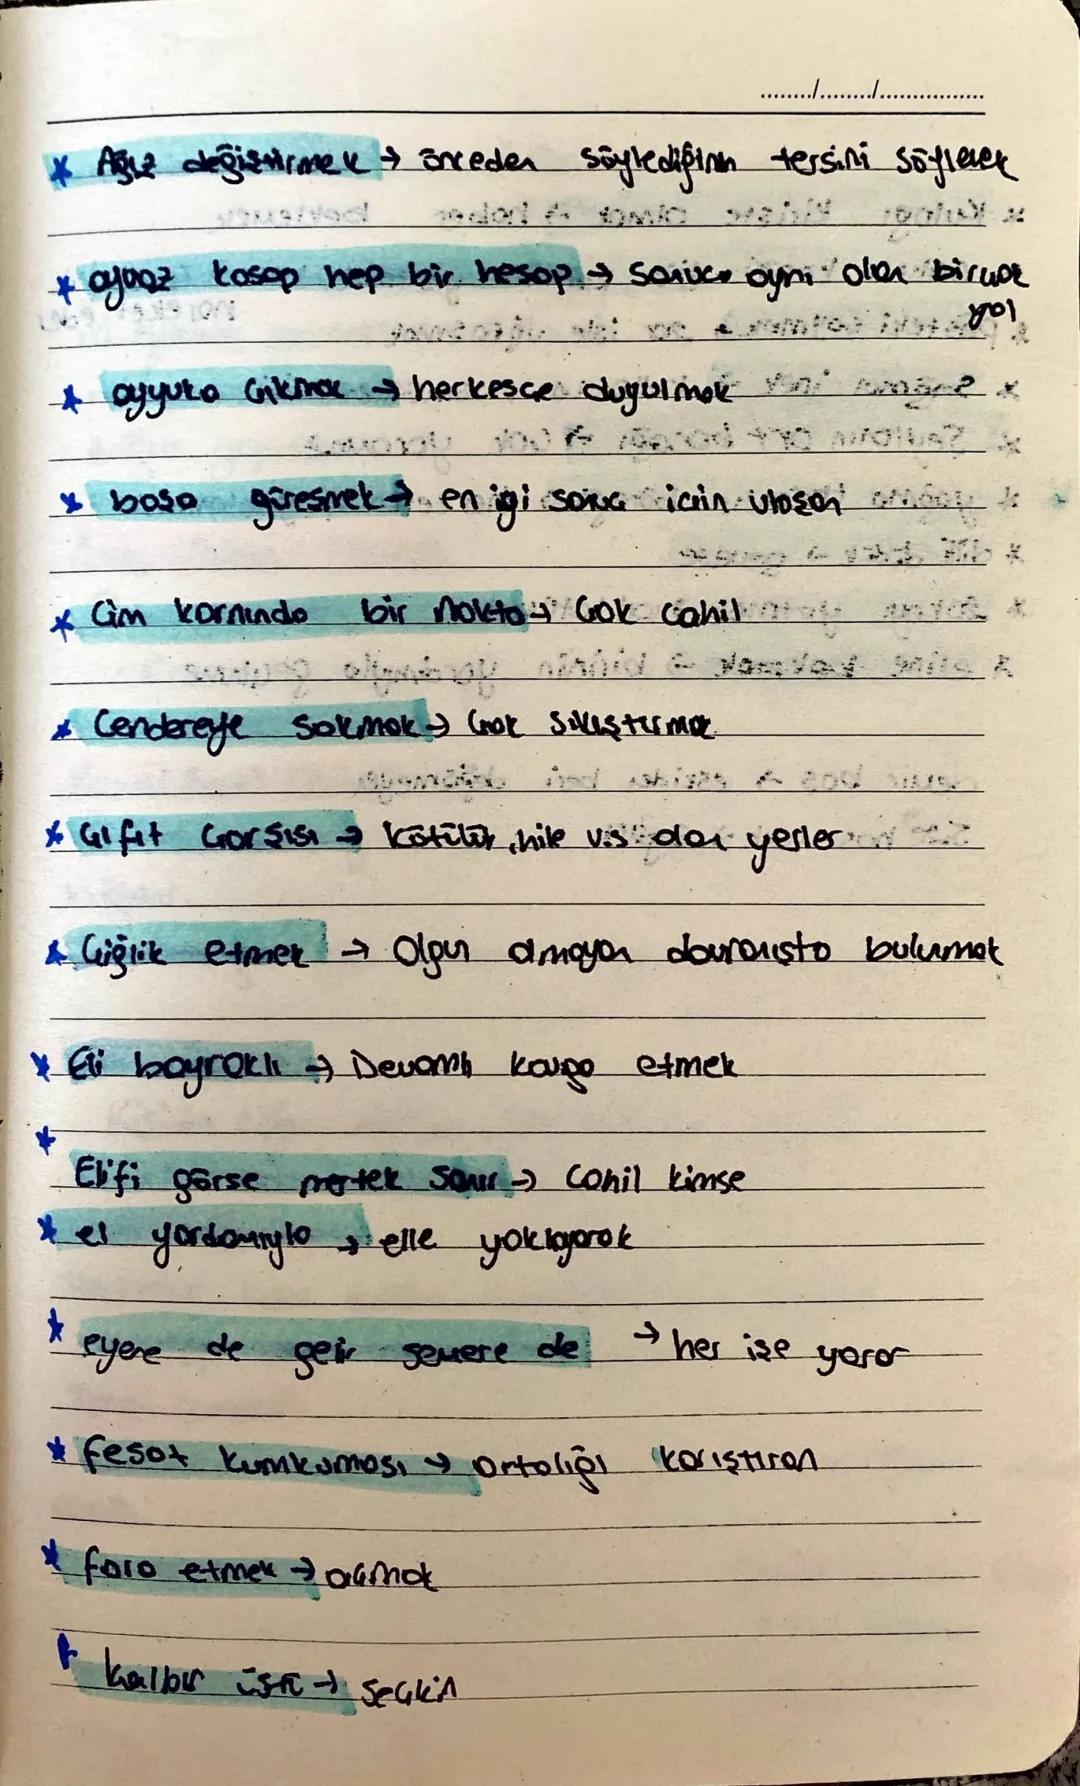 ......../......../................
* Ağız değiştirmek → önceden söylediğinin tersini söylemek
* ayvaz kasap hep bir hesap → sonuca aynı olan birçok
yol
* ayyuka çıkmak → herkesçe duyulmak
* başa güreşmek → en iyi sonuç için uğaşan
* Cim karnında bir nokta → Çok cahil
* Cendereye sokmak → Çok sıkıştırmak
* Çıfıt Çarşısı → Kötülük, hile v.s olan yerler
* Çiğlik etmek → Olgun olmayan davranışta bulunmak
* Eli bayraklı → Devamlı kavga etmek
* Elifi görse mertek sanır → Cahil kimse
* el yordamıyla → elle yoklayarak
* eyere de gelir semere de → her işe yarar
* fesat kumkuması → ortalığı karıştıran
* fora etmek → açmak
* kalbur üstü → seçkin